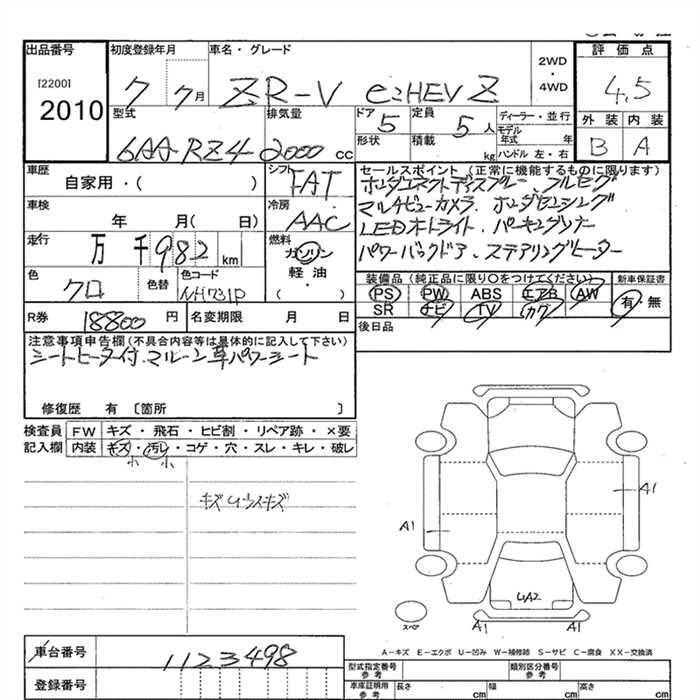 出品番号
[2200]
2010
初度登録年月
7 7月
車名・グレード
ZR-V e:HEV Z
2WD・4WD
評価点
4.5
外装 内装
B A
型式
6AA-RZ4
排気量
2000 cc
ドア 5
形状
定員 5 人
積載 kg
ディーラー・並行
モデル年式 年
ハンドル 左・右
車歴
自家用・( )
シフト
FAT
車検
年 月( 日)
冷房
AAC
走行
万 千 982 km
燃料
ガソリン
軽油
・( )
色
クロ
色替
色コード
NH731P
R券
18800 円
名変期限 月 日
セールスポイント(正常に機能するものに限ります)
ホンダコネクトディスプレー、フルセグ
マルチビューカメラ、ホンダセンシング
LEDオートライト、パーキングソナー
パワーバックドア、ステアリングヒーター
装備品(純正品に限り○をつけてください)
PS PW ABS エアB AW
SR ナビ TV カワ
新車保証書
有・無
後日品
注意事項申告欄(不具合内容等は具体的に記入して下さい)
シートヒーター付、マルーン革パワーシート
修復歴 有 〔箇所 〕
検査員記入欄
FW キズ・飛石・ヒビ割・リペア跡・×要
内装 キズ・汚レ・コゲ・穴・スレ・キレ・破レ
小 小
キズ U ウスキズ
A1
A1
UA2
A1 A1
スペア
A-キズ E-エクボ U-凹み W-補修跡 S-サビ C-腐食 XX-交換済
車台番号
1123498
登録番号
型式指定番号 参考
類別区分番号 参考
車庫証明用 参考
長さ cm 幅 cm 高さ cm